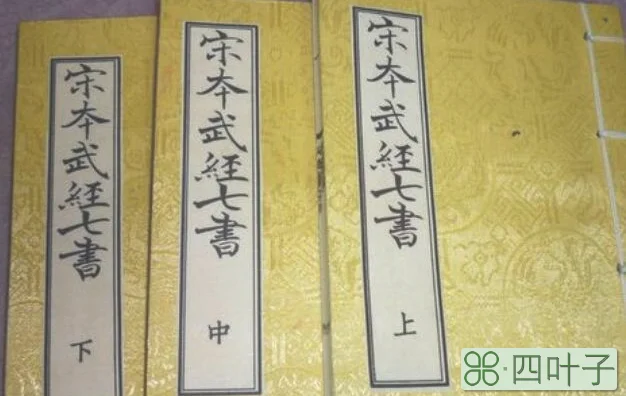 宋本武經七書
上
宋本武經七書
中
宋本武經七書
下
四叶子